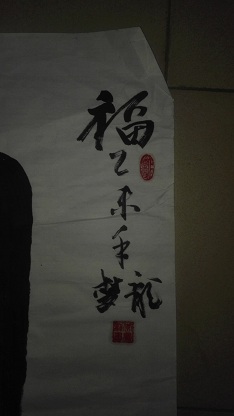 福
乙未年
龍